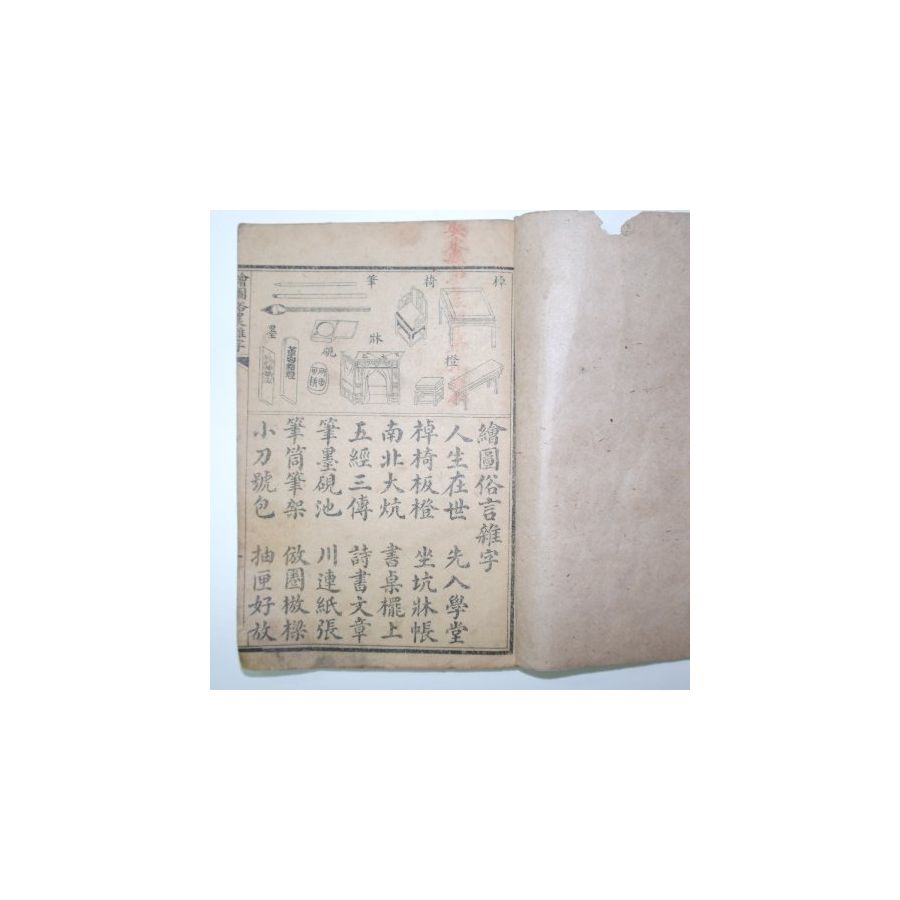 棹
椅
筆
橙
牀
硯
墨
繪圖俗言雜字
人生在世 先入學堂
棹椅板橙 坐坑牀帳
南北大炕 書桌擺上
五經三傳 詩書文章
筆墨硯池 川連紙張
筆筒筆架 倣圈楌樑
小刀號包 抽匣好放
繪圖俗言雜字